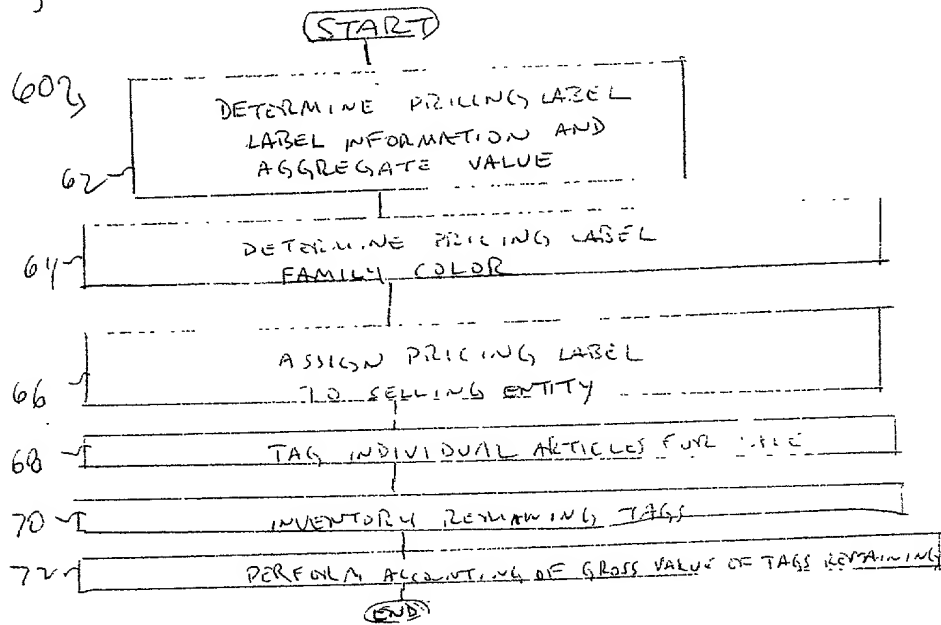 START
602
DETERMINE PRICING LABEL
LABEL INFORMATION AND
AGGREGATE VALUE
62
DETERMINE PRICING LABEL
FAMILY COLOR
64
ASSIGN PRICING LABEL
TO SELLING ENTITY
66
TAG INDIVIDUAL ARTICLES FOR
68
INVENTORY REMAINING TAGS
70
PERFORM ACCOUNTING OF GROSS VALUE OF TAGS REMAINING
72
END